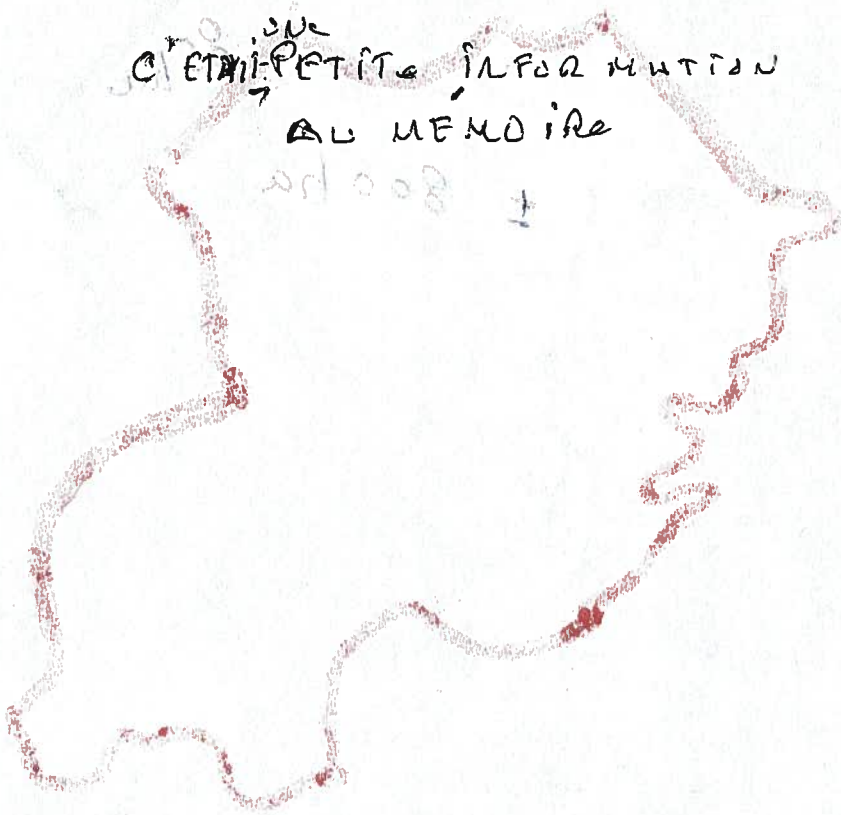 C'ETAIT UNE PETITE INFORMATION
AU MEMOIRE
± 800 ha